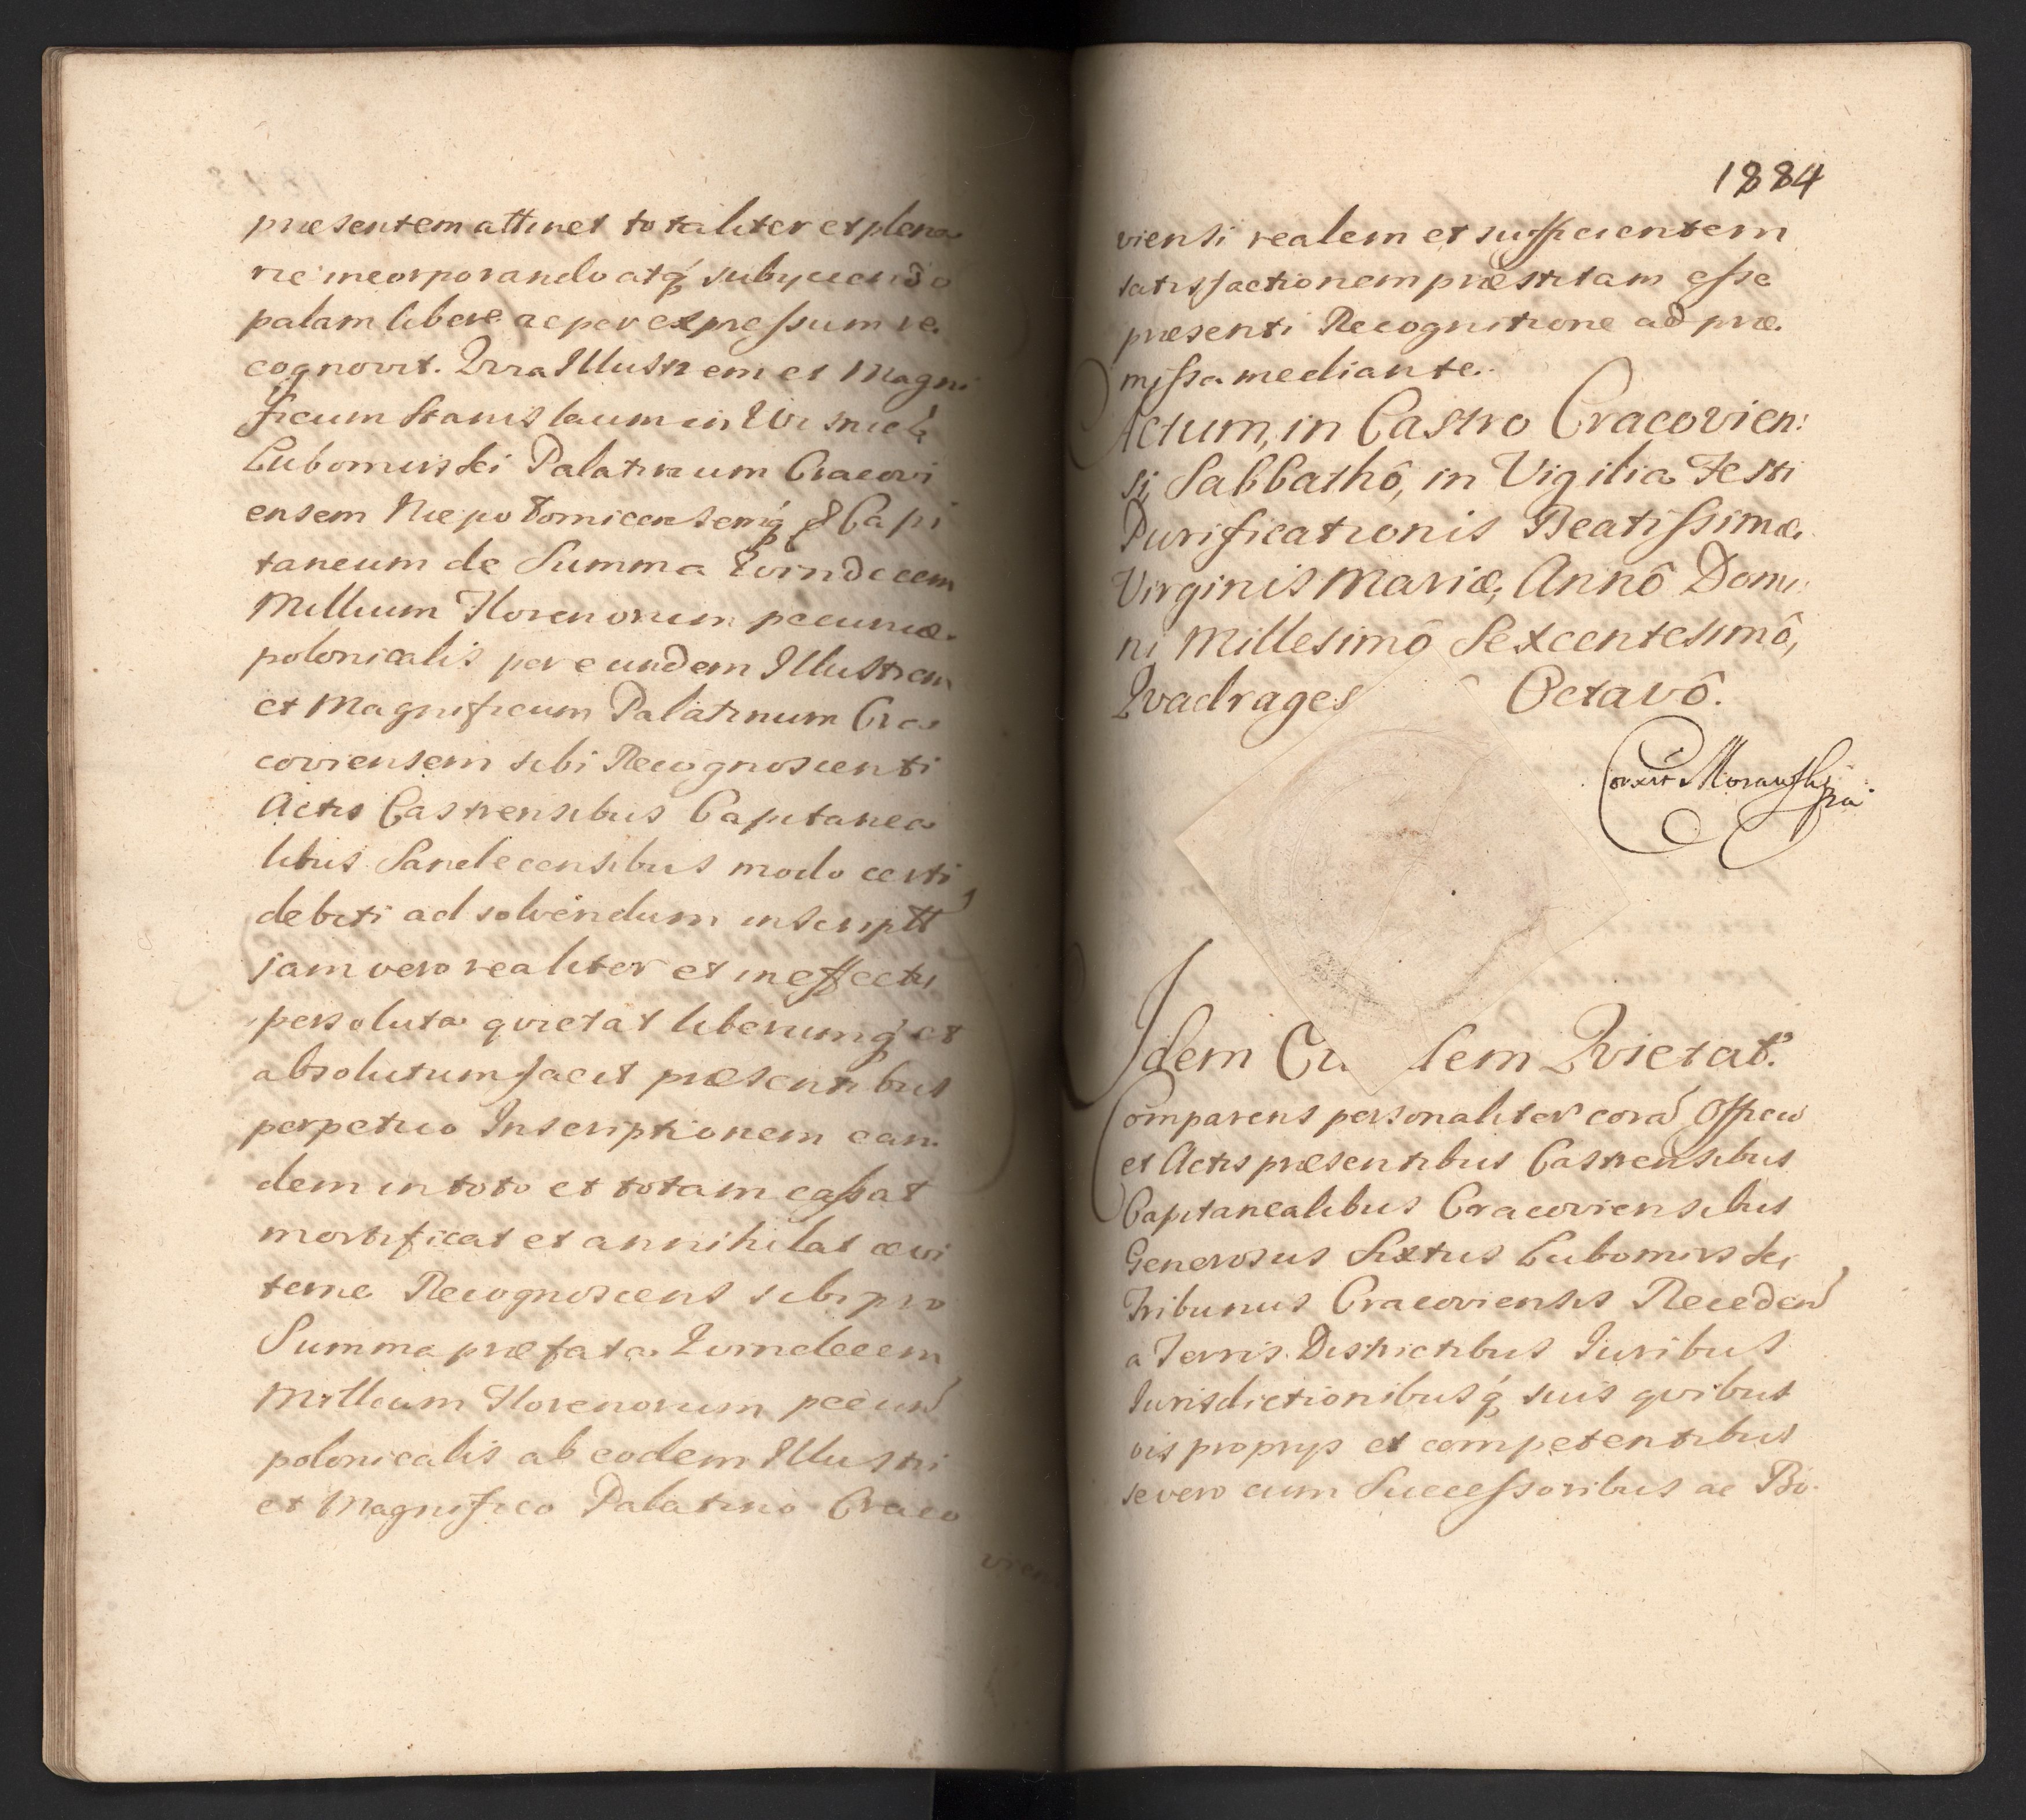 præsentem attinet totaliter et plena
rie incorporando atq́ subyciendo
palam libere ac per expressum re
cognovit. Qvia Illustrem et Magni
ficum Stanislaum in Wisnicz
Lubomirski Palatinum Cracovi
ensem Niepołomicensemq́ & Capi
taneum de Summa Qvindecem
Millium Florenorum pecuniæ
polonicalis per eundem Illustrem
et Magnificum Palatinum Cra
coviensem sibi Recognoscenti
Actis Castrensibus Capitanea
libus Sandecensibus modo certi
debiti ad solvendum inscriptt
jam vero realiter et in effectu
persoluta qvietat liberumq́ et
absolutum facit præsentibus
perpetuo Inscriptionem ean
dem in toto et totam cassat
mortificat et annihilat ævi
terne Recognoscens sibi pro
Summa præfata Qvindecem
Millium Florenorum pecun
polonicalis ab eodem Illustri
et Magnifico Palatino Craco
vien
1884
viensi realem et sufficientem
satisfactionem præstitam esse
præsenti Recognitione ad præ
missa mediante.
Actum, in Castro Cracovien:
si, Sabbathô, in Vigilia Festi
Purificationis Beatissimæ
Virginis Mariæ, Annô Domi:
ni Millesimô Sexcentesimô,
Qvadrages Octavô.
Correxit Morawski
Idem dem Qvietat.
Comparens personaliter cora Officio
et Actis præsentibus Castrensibus
Capitanealibus Cracoviensibus
Generosus Sixtus Lubomirski
Tribunus Cracoviensis Receden
a Terris Districtibus Iuribus
Iurisdictionibusq́ suis qvibus
vis propryis et competentibus
se vero cum Successoribus ac Bo